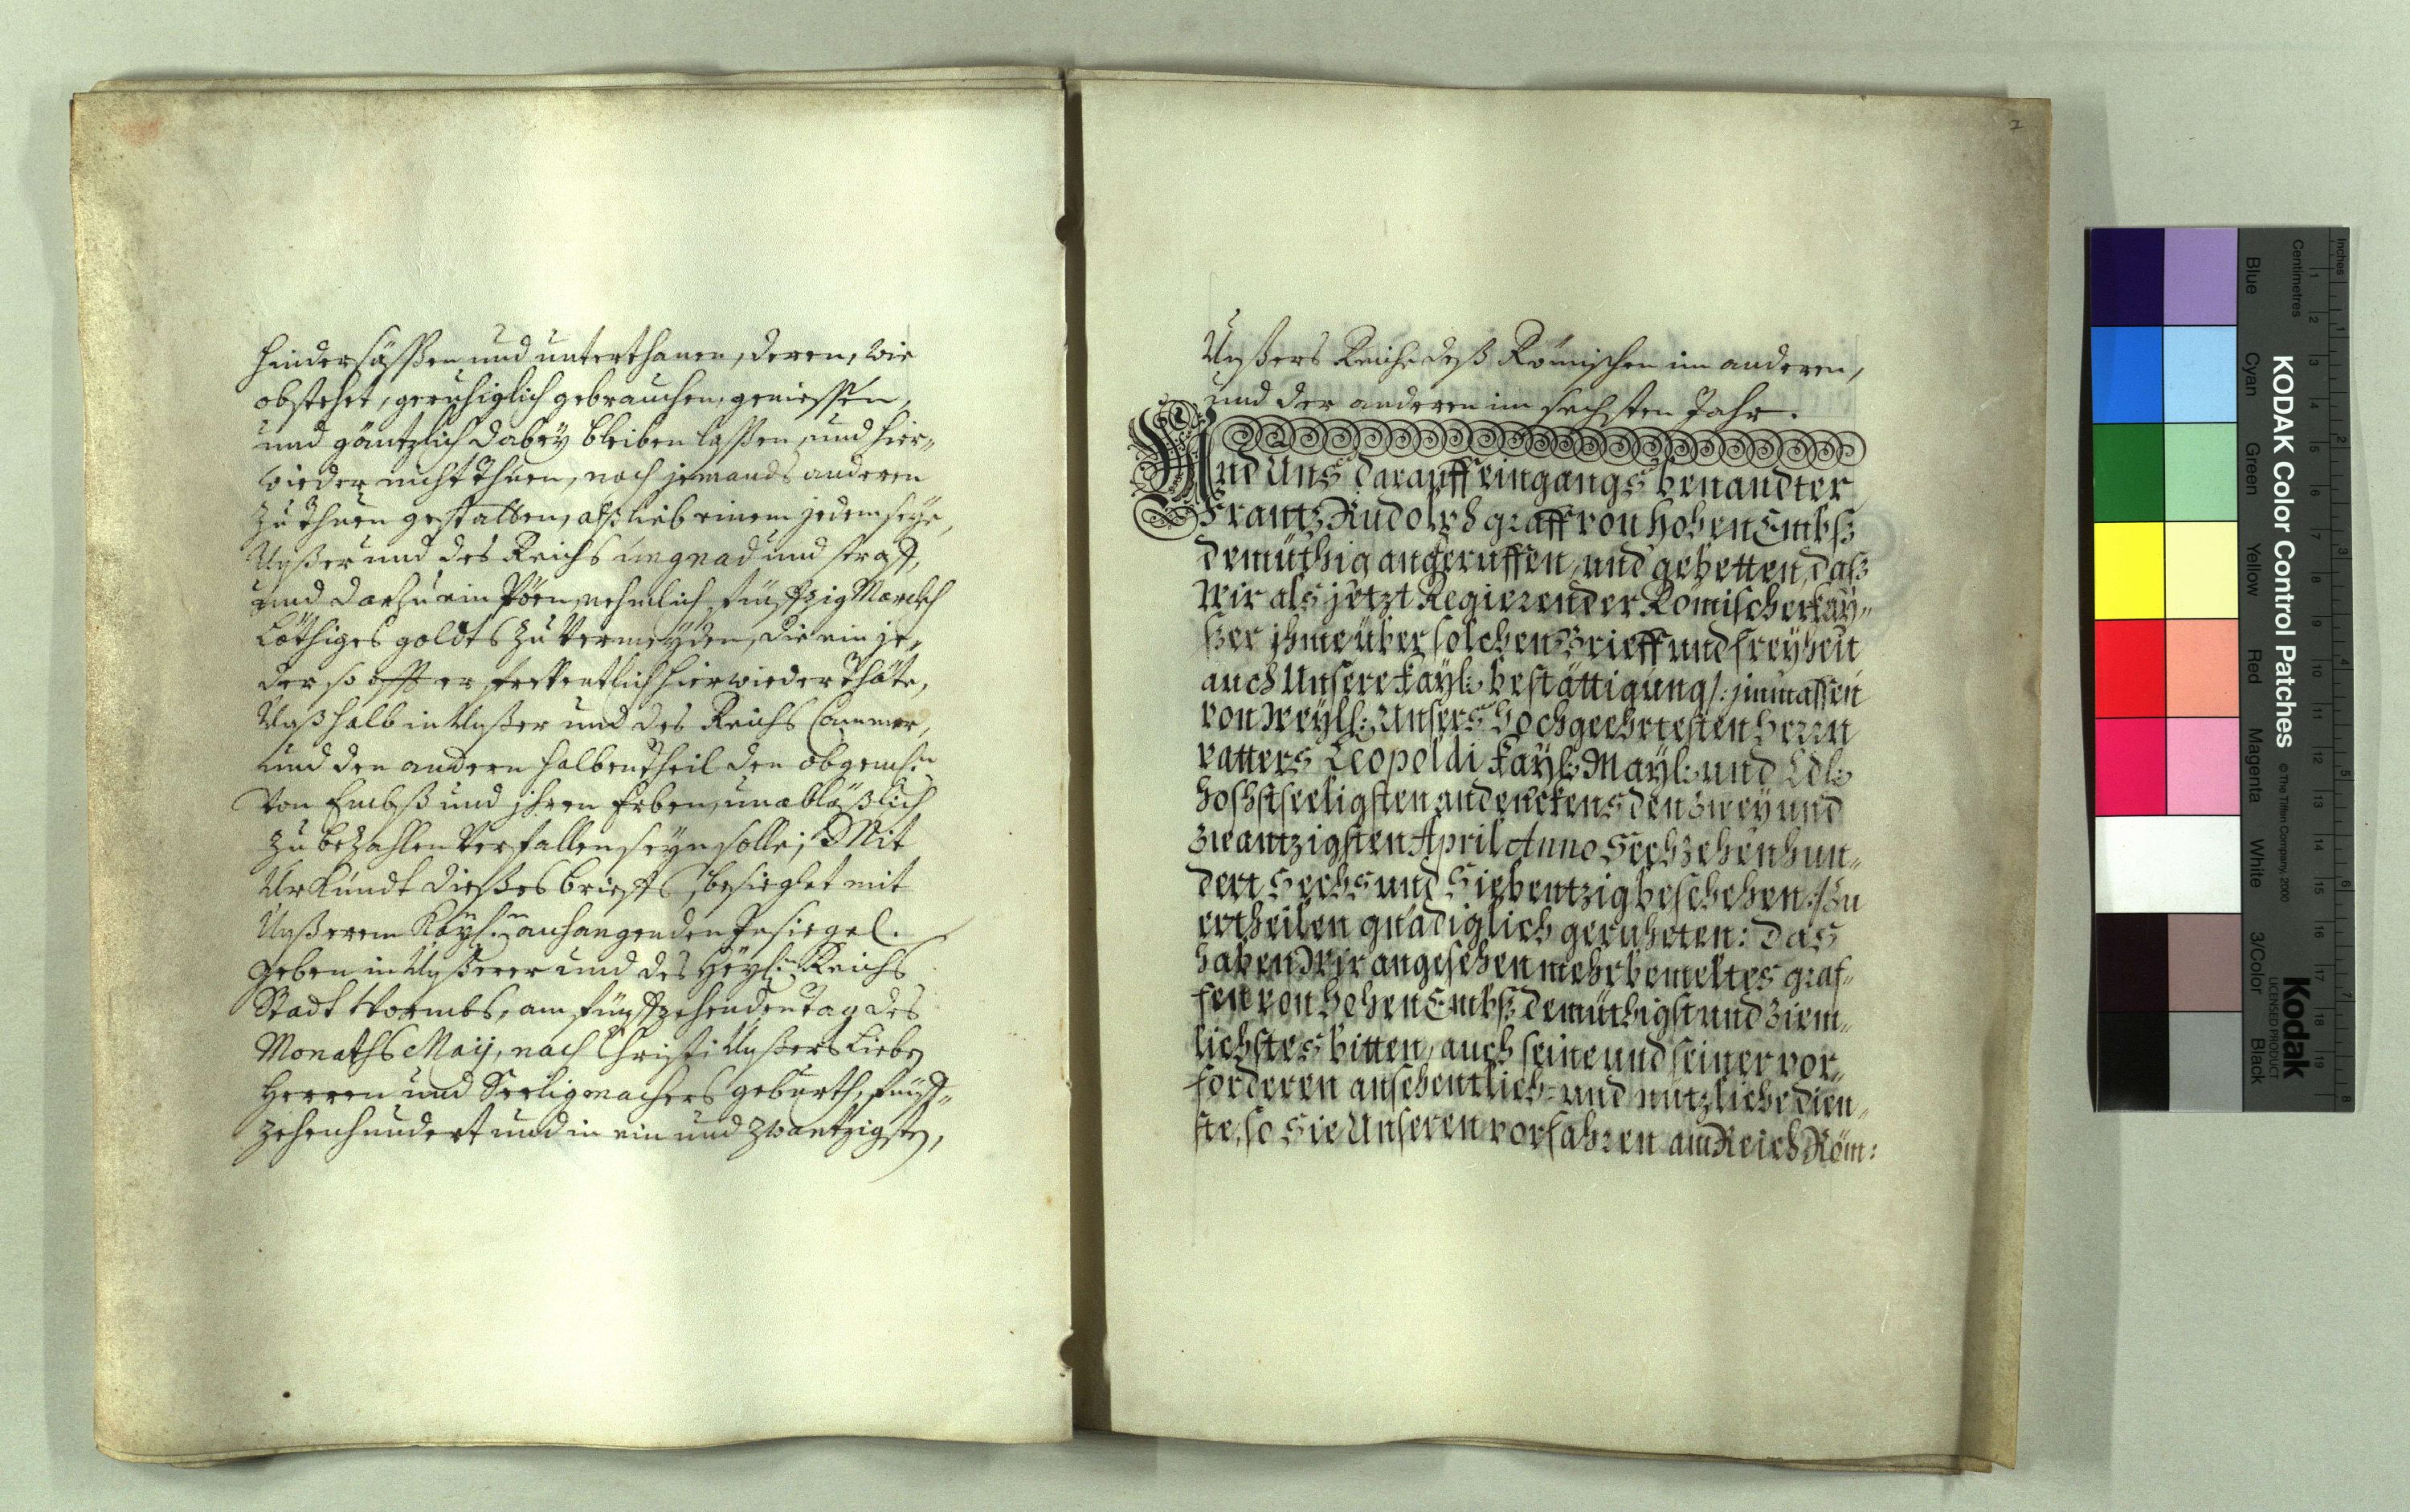 hindersässen und unterthanen, deren, wie
obstehet, geruhiglich gebrauchen, geniessen,
und gäntzlich dabey bleiben lassen, und hier„
wieder nicht thuen, noch jemands anderen
zu thuen gestatten, als lieb einem jedem seye,
Unßer und des Reichs ungnad und straff,
und darzu ein Pöen, nehmlich fünffzig Marckh
Löthiges goldts zu vermeyden, die ein je„
der so offt er freffentlich hierwieder thäte,
Unß halb in Unßer und des Reichs Cammer,
und den andern halben theil den obgem:n
von Embß und ihren Erben, unabläßlich
zu bezahlen verfallen seyn solle; Mit
Urkundt dießes brieffs, besieglet mit
Unßerem Kayl:n anhangenden Insiegel.
Geben in Unßerer und des Heyl:n Reichs
Stadt Wormbs, am fünffzehenden tag des
Monaths Maij, nach Christi Unßers Lieben
Herren und Seeligmachers geburth, fünff„
zehenhundert und in ein und zwantzigsten,
7
Unßers Reichs deß Römischen im anderen,
und der anderen im sechsten Jahr.
Und Uns darauff eingangs benandter
Frantz Rudolph graff von hohen Embß
demüthig angeruffen, und gebetten, daß
Wir als jetzt Regierender Römischer kay„
ßer jhme über solchen Brieff und freyheit
auch Unsere kayl: bestättigung /: jnmassen
von Weyl: Unsers hochgeehrtesten herrn
vatters Leopoldi kayl: Mayl: und Ldl:
hochstseeligsten andenckens den zwey und
zwantzigsten April Anno Sechzehenhun„
dert Sechs und Siebentzig beschehen :/ zu
ertheilen gnädiglich geruheten: das
haben Wir angesehen mehrbemeltes graf„
fen von hohen Embß demüthigst und ziem„
lichstes bitten, auch seine und seiner vor„
forderen ansehentlich= und nutzliche dien„
ste, so Sie Unseren vorfahren am Reich Röm:
KODAK Color Control Patches
© The Tiffen Company, 2000
Kodak
LICENSED PRODUCT
Inches
Centimetres
1 2 3 4 5 6 7 8 9 10 11 12 13 14 15 16 17 18 19
1 2 3 4 5 6 7 8
Blue
Cyan
Green
Yellow
Red
Magenta
White
3/Color
Black